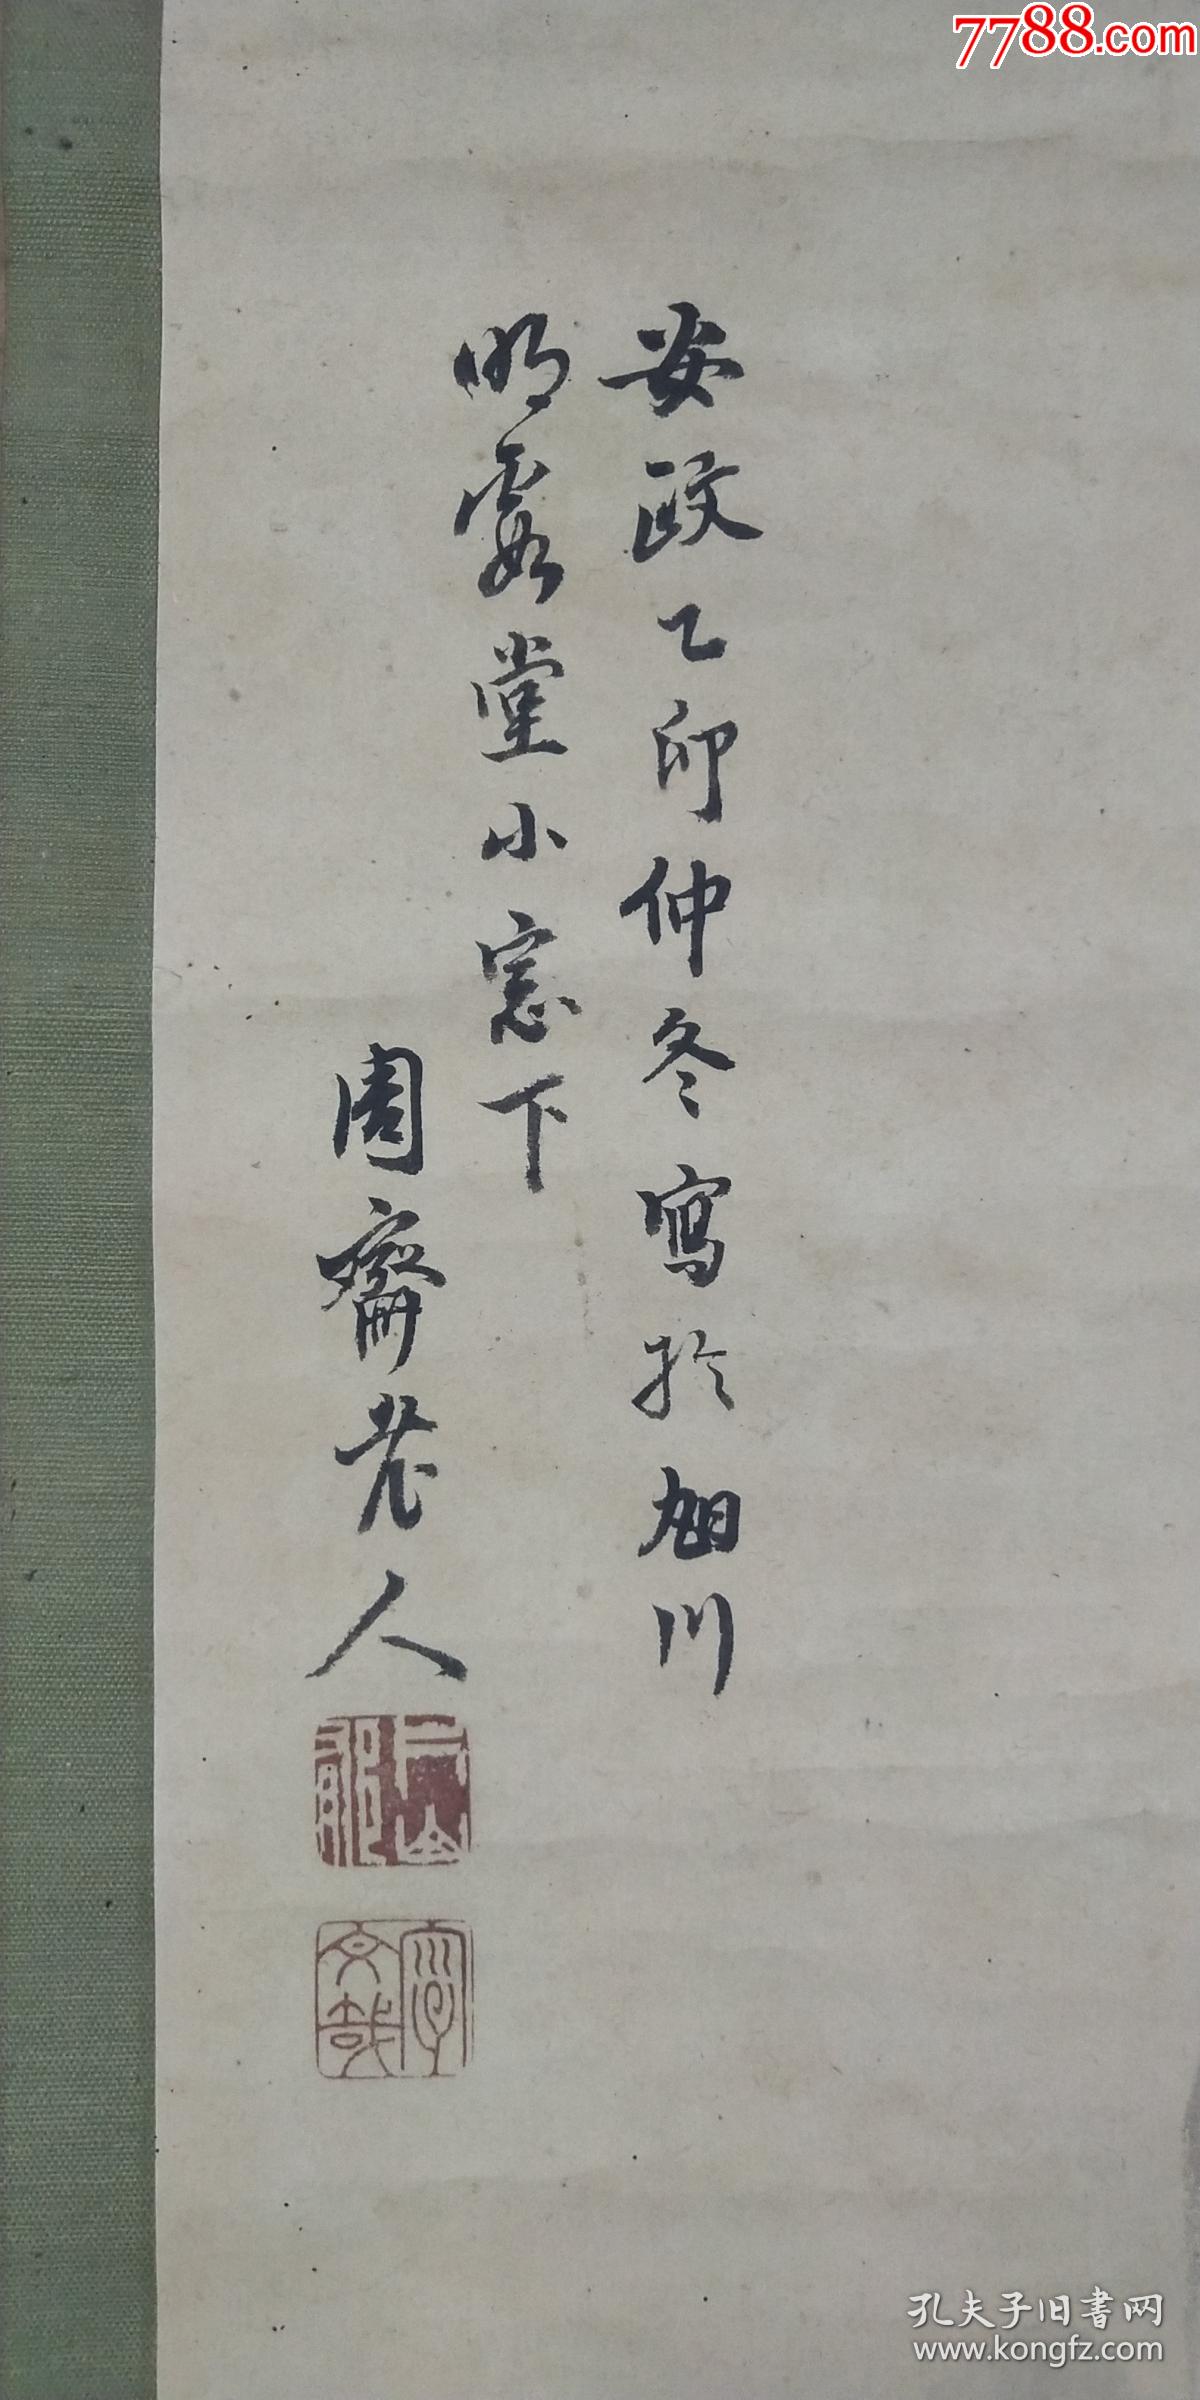 7788.com
安政乙卯仲冬寫於旭川
明霞堂小窓下
周齋老人
孔夫子旧書网
www.kongfz.com